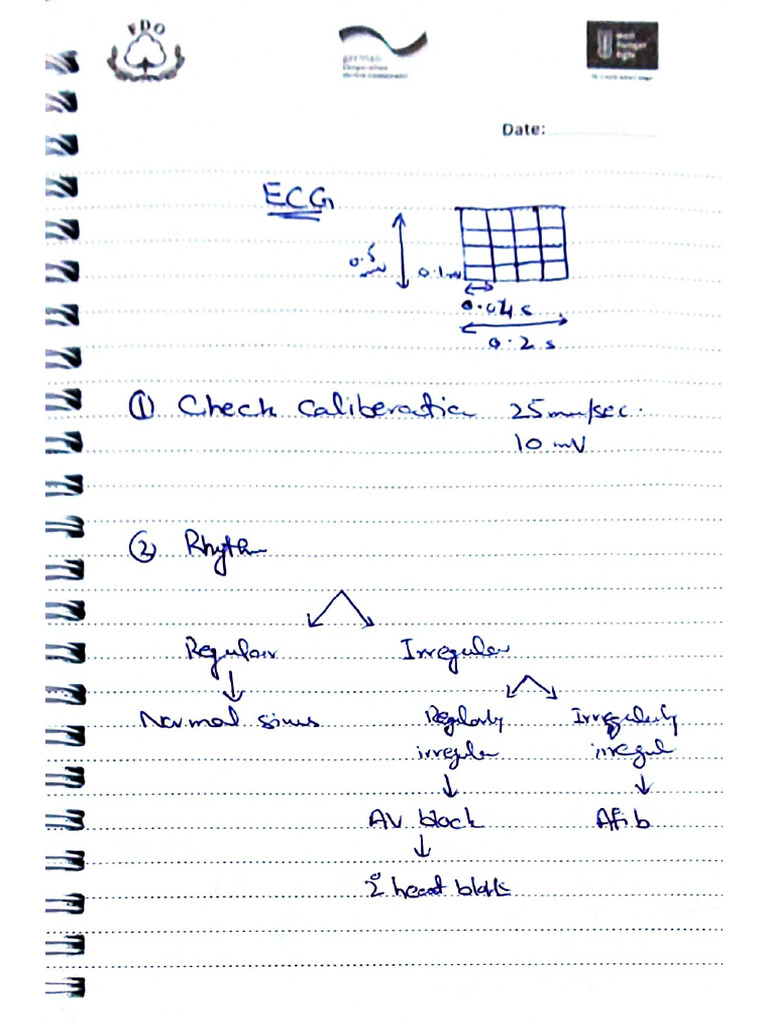 FDO
german
cooperation
Date:
ECG
0.5
mv
0.1mv
0.04s
0.2s
① Check Caliberatio 25mm/sec.
10 mV
② Rhythm
Regular Irregular
Normal sinus Regularly Irregularly
irregular irregul
AV block Afib
2° heart block